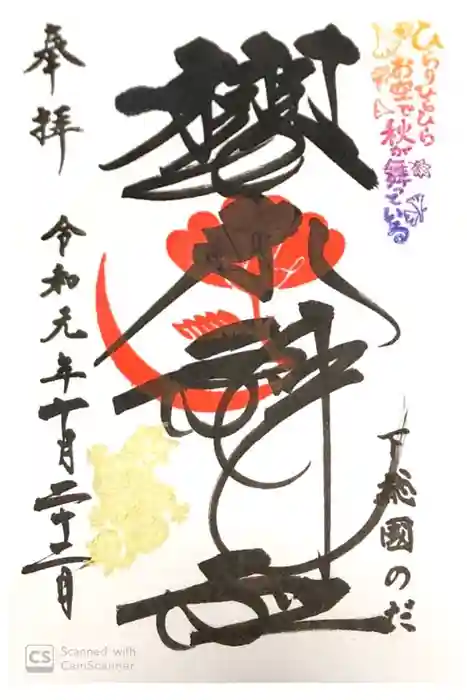 ひらりひらひら
お空で秋が舞っている
下総國のだ
櫻木神社
奉拝
令和元年十月二十二日
CS
Scanned with
CamScanner